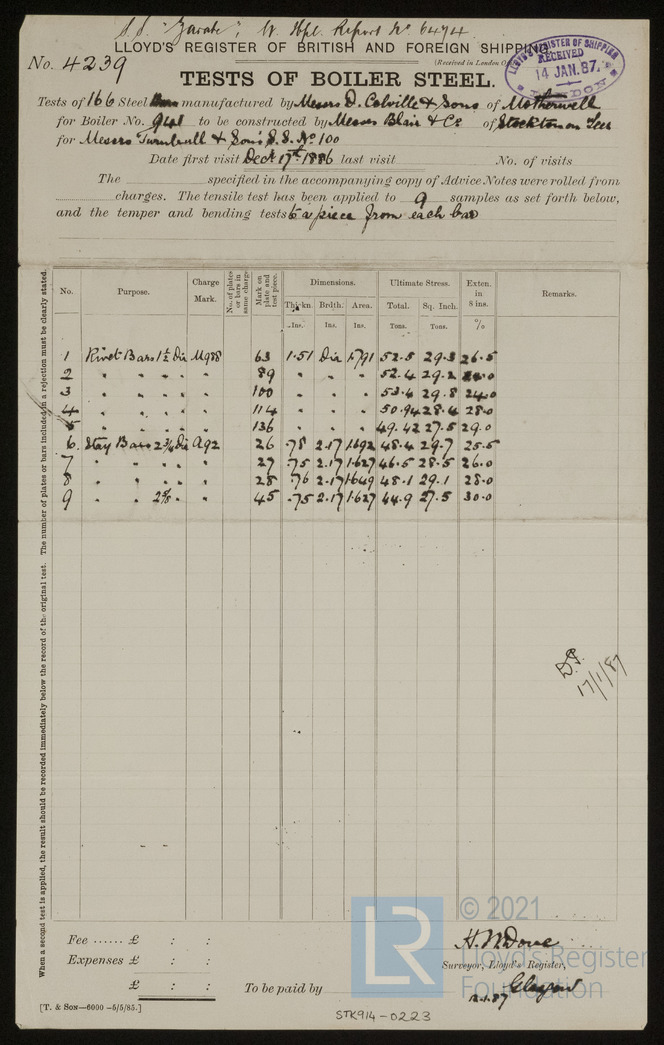 S.S. "Zarate", W. Hpl. Report No 6474
LLOYD'S REGISTER OF BRITISH AND FOREIGN SHIPPING.
No. 4239
(Received in London Office
LLOYD'S REGISTER OF SHIPPING
RECEIVED
14 JAN. 87.
LONDON
TESTS OF BOILER STEEL.
Tests of 166 Steel Bars manufactured by Messrs D. Colville & Sons of Motherwell
for Boiler No. 941 to be constructed by Messrs Blair & Co of Stockton on Tees
for Messrs Turnbull & Son's S.S. No 100
Date first visit Decr 17th 1886 last visit No. of visits
The specified in the accompanying copy of Advice Notes were rolled from
charges. The tensile test has been applied to 9 samples as set forth below,
and the temper and bending tests to a piece from each bar
No. Purpose. Charge Mark. No. of plates or bars in same charge Mark on plate and test piece. Dimensions. Ultimate Stress. Exten. in 8 ins. Remarks.
Thickn. Brdth. Area. Total. Sq. Inch.
Ins. Ins. Ins. Tons. Tons. %
1 Rivet Bars 1½ Dia M988 63 1.51 Dia 1.791 52.5 29.3 26.5
2 " " " " " 89 " " " 52.4 29.2
3 " " " " " 100 " " " 53.4 29.8 24.0
4 " " " " " 114 " " " 50.94 28.4 28.0
5 " " " " " 136 " " " 49.42 27.5 29.0
6. Stay Bars 2¾ Dia A92 26 .78 2.17 1.692 48.4 29.7 25.5
7 " " " " " 27 .75 2.17 1.627 46.5 28.5 26.0
8 " " " " " 28 .76 2.17 1.649 48.1 29.1 28.0
9 " " 2⅝ " " 45 .75 2.17 1.627 44.9 27.5 30.0
17/1/87
When a second test is applied, the result should be recorded immediately below the record of the original test. The number of plates or bars included in a rejection must be clearly stated.
Fee ...... £ : :
Expenses £ : :
£ : :
To be paid by
Surveyor, Lloyd's Register,
Glasgow
12.1.87
[T. & Son—6000 —5/5/85.]
STK914-0223
LR
© 2021
Lloyd's Register
Foundation